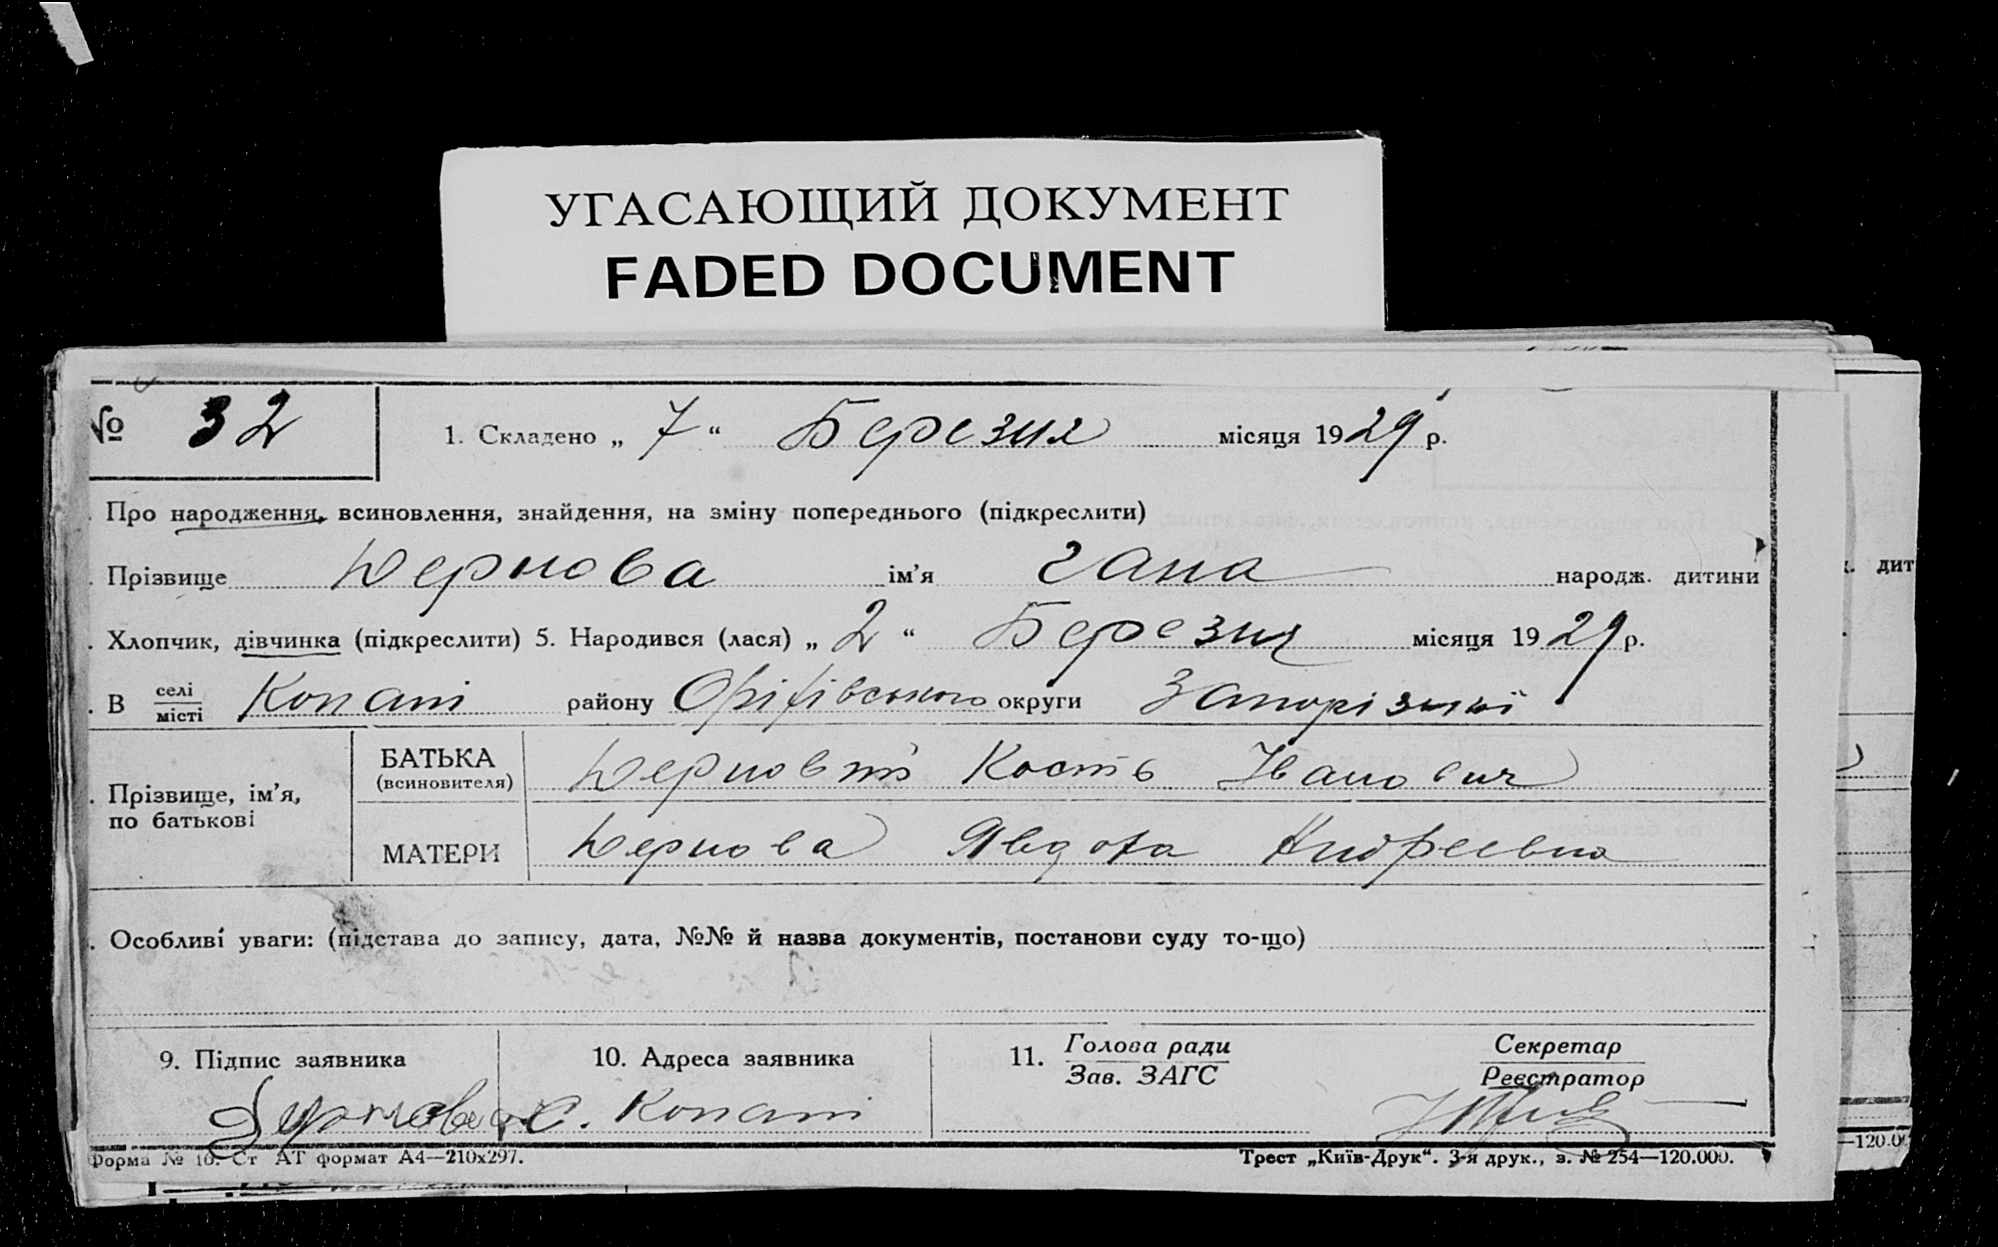 УГАСАЮЩИЙ ДОКУМЕНТ
FADED DOCUMENT
№ 32
1. Складено „ 7 “ Березня місяця 1929 р.
Про народження, всиновлення, знайдення, на зміну попереднього (підкреслити)
Прізвище Дернова ім’я Гана народж. дитини
. Хлопчик, дівчинка (підкреслити) 5. Народився (лася) „ 2 “ Березня місяця 1929 р.
. В селі/місті Копані району Оріхівського округи Запорізької
. Прізвище, ім’я, по батькові
БАТЬКА (всиновителя) Дерновий Кость Іванович
МАТЕРИ Дернова Явдоха Андреевна
. Особливі уваги: (підстава до запису, дата, №№ й назва документів, постанови суду то-що)
9. Підпис заявника
10. Адреса заявника
11. Голова ради
Зав. ЗАГС
Секретар
Реєстратор
с. Копані
Форма № 10. Ст АТ формат А4—210х297.
Трест „Київ-Друк“. 3-я друк., з. № 254—120.000.
дит
—120.00